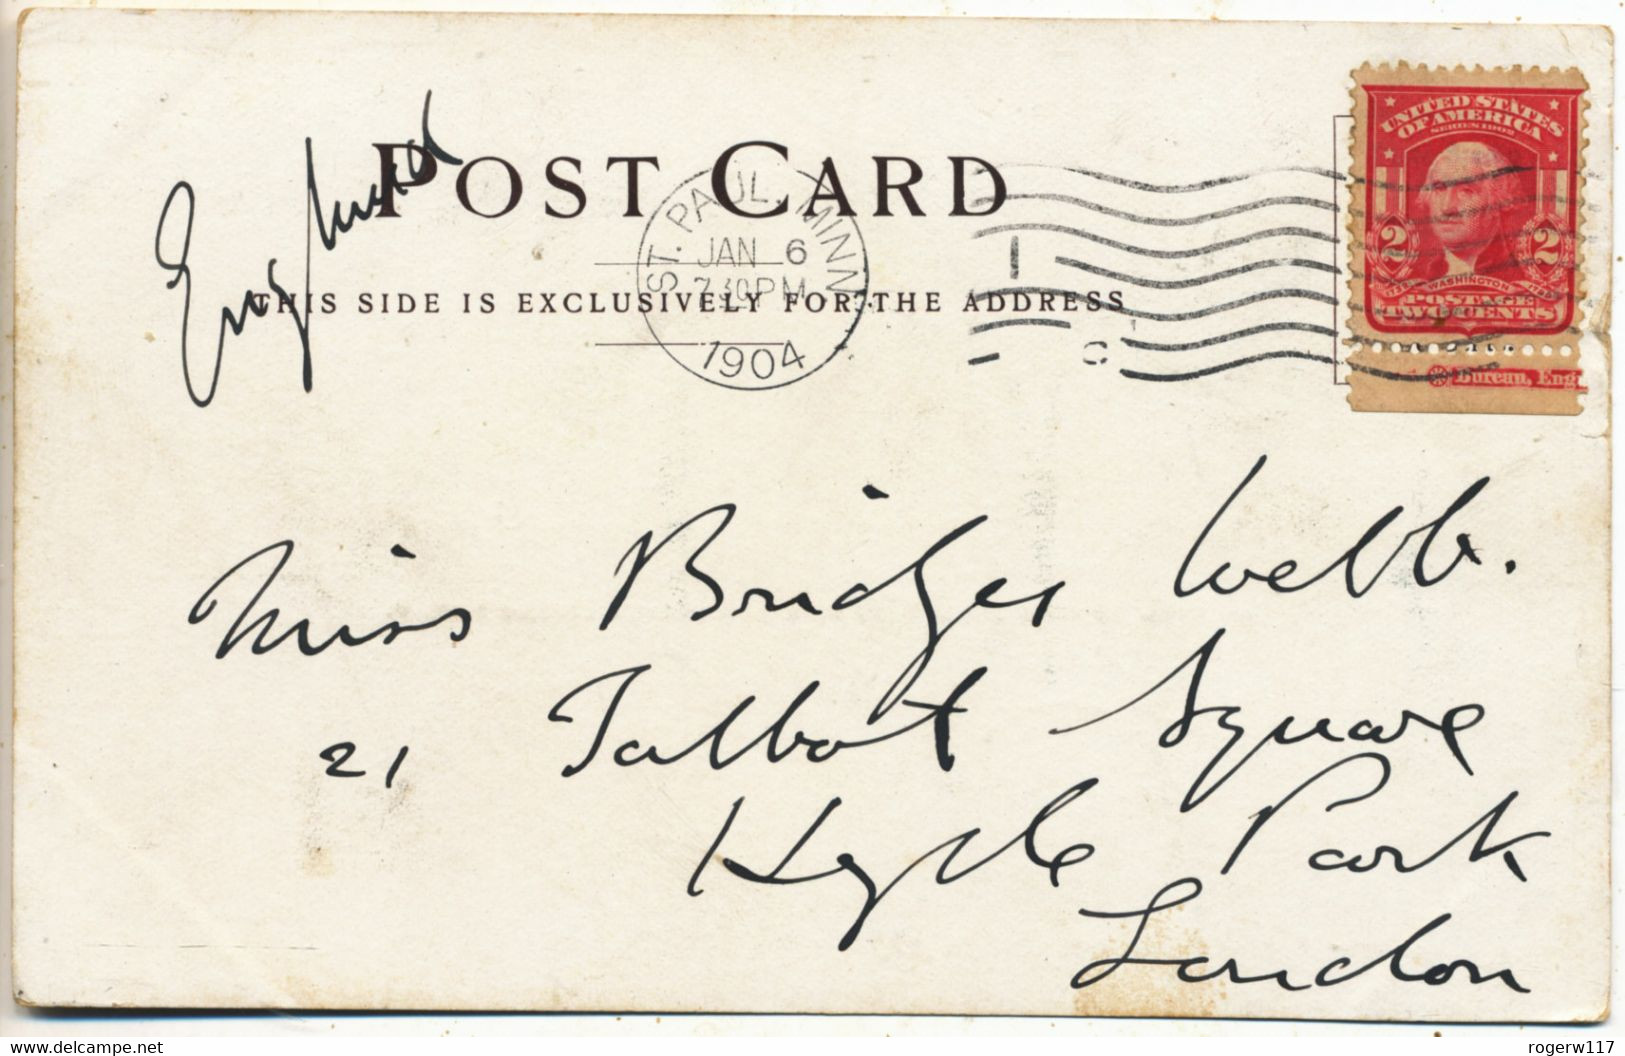 England
POST CARD
THIS SIDE IS EXCLUSIVELY FOR THE ADDRESS
ST. PAUL, MINN.
JAN 6
7 30 PM
1904
UNITED STATES
OF AMERICA
SERIES 1902
2 2
1732 WASHINGTON 1799
POSTAGE
TWO CENTS
Bureau, Eng
Miss Bridges Webb.
21 Talbot Square
Hyde Park
London
delcampe.net
rogerw117